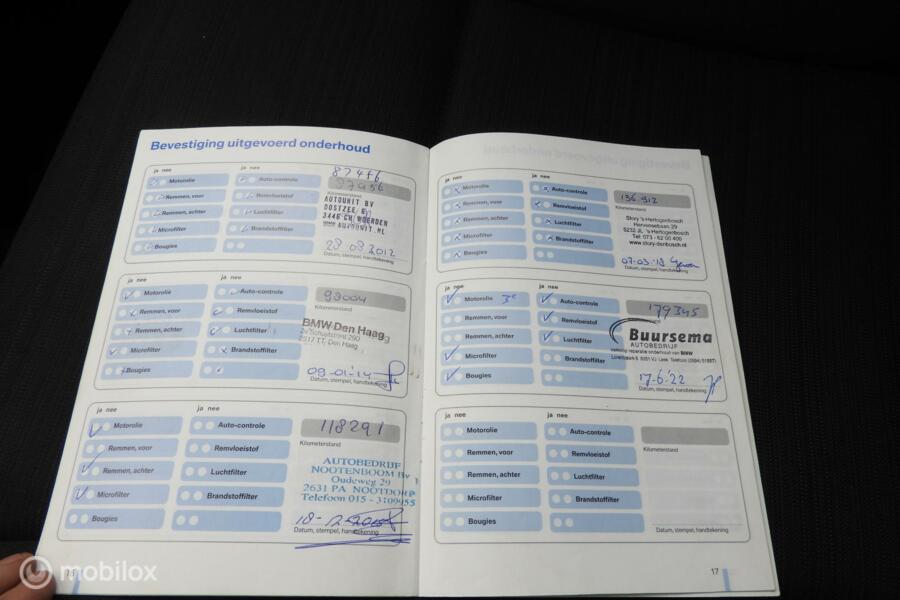 Bevestiging uitgevoerd onderhoud
ja nee
ja nee
Motorolie
Auto-controle
87456
Remmen, voor
Remvloeistof
Kilometerstand
Remmen, achter
Luchtfilter
AUTOUNIT BV
3446 CH WOERDEN
Microfilter
Brandstoffilter
Bougies
28 08 2012
Datum, stempel, handtekening
ja nee
ja nee
Motorolie
Auto-controle
93004
Remmen, voor
Remvloeistof
Kilometerstand
Remmen, achter
Luchtfilter
BMW Den Haag
2517 TT, Den Haag
Microfilter
Brandstoffilter
Bougies
09-01-14
Datum, stempel, handtekening
ja nee
ja nee
Motorolie
Auto-controle
118291
Remmen, voor
Remvloeistof
Kilometerstand
Remmen, achter
Luchtfilter
AUTOBEDRIJF
NOOTENBOOM BV
Oudeweg 29
2631 PA NOOTDORP
Telefoon 015 - 3109955
Microfilter
Brandstoffilter
Bougies
Datum, stempel, handtekening
ja nee
ja nee
Motorolie
Auto-controle
136.912
Remmen, voor
Remvloeistof
Kilometerstand
Remmen, achter
Luchtfilter
Story 's-Hertogenbosch
Hervensebaan 29
5232 JL 's-Hertogenbosch
Tel: 073 - 62 00 400
www.story-denbosch.nl
Microfilter
Brandstoffilter
Bougies
07-03-18
Datum, stempel, handtekening
ja nee
ja nee
Motorolie
Auto-controle
179345
Remmen, voor
Remvloeistof
Remmen, achter
Luchtfilter
Buursema
AUTOBEDRIJF
Microfilter
Brandstoffilter
Bougies
17-6-22
Datum, stempel, handtekening
ja nee
ja nee
Motorolie
Auto-controle
Remmen, voor
Remvloeistof
Kilometerstand
Remmen, achter
Luchtfilter
Microfilter
Brandstoffilter
Bougies
Datum, stempel, handtekening
17
mobilox